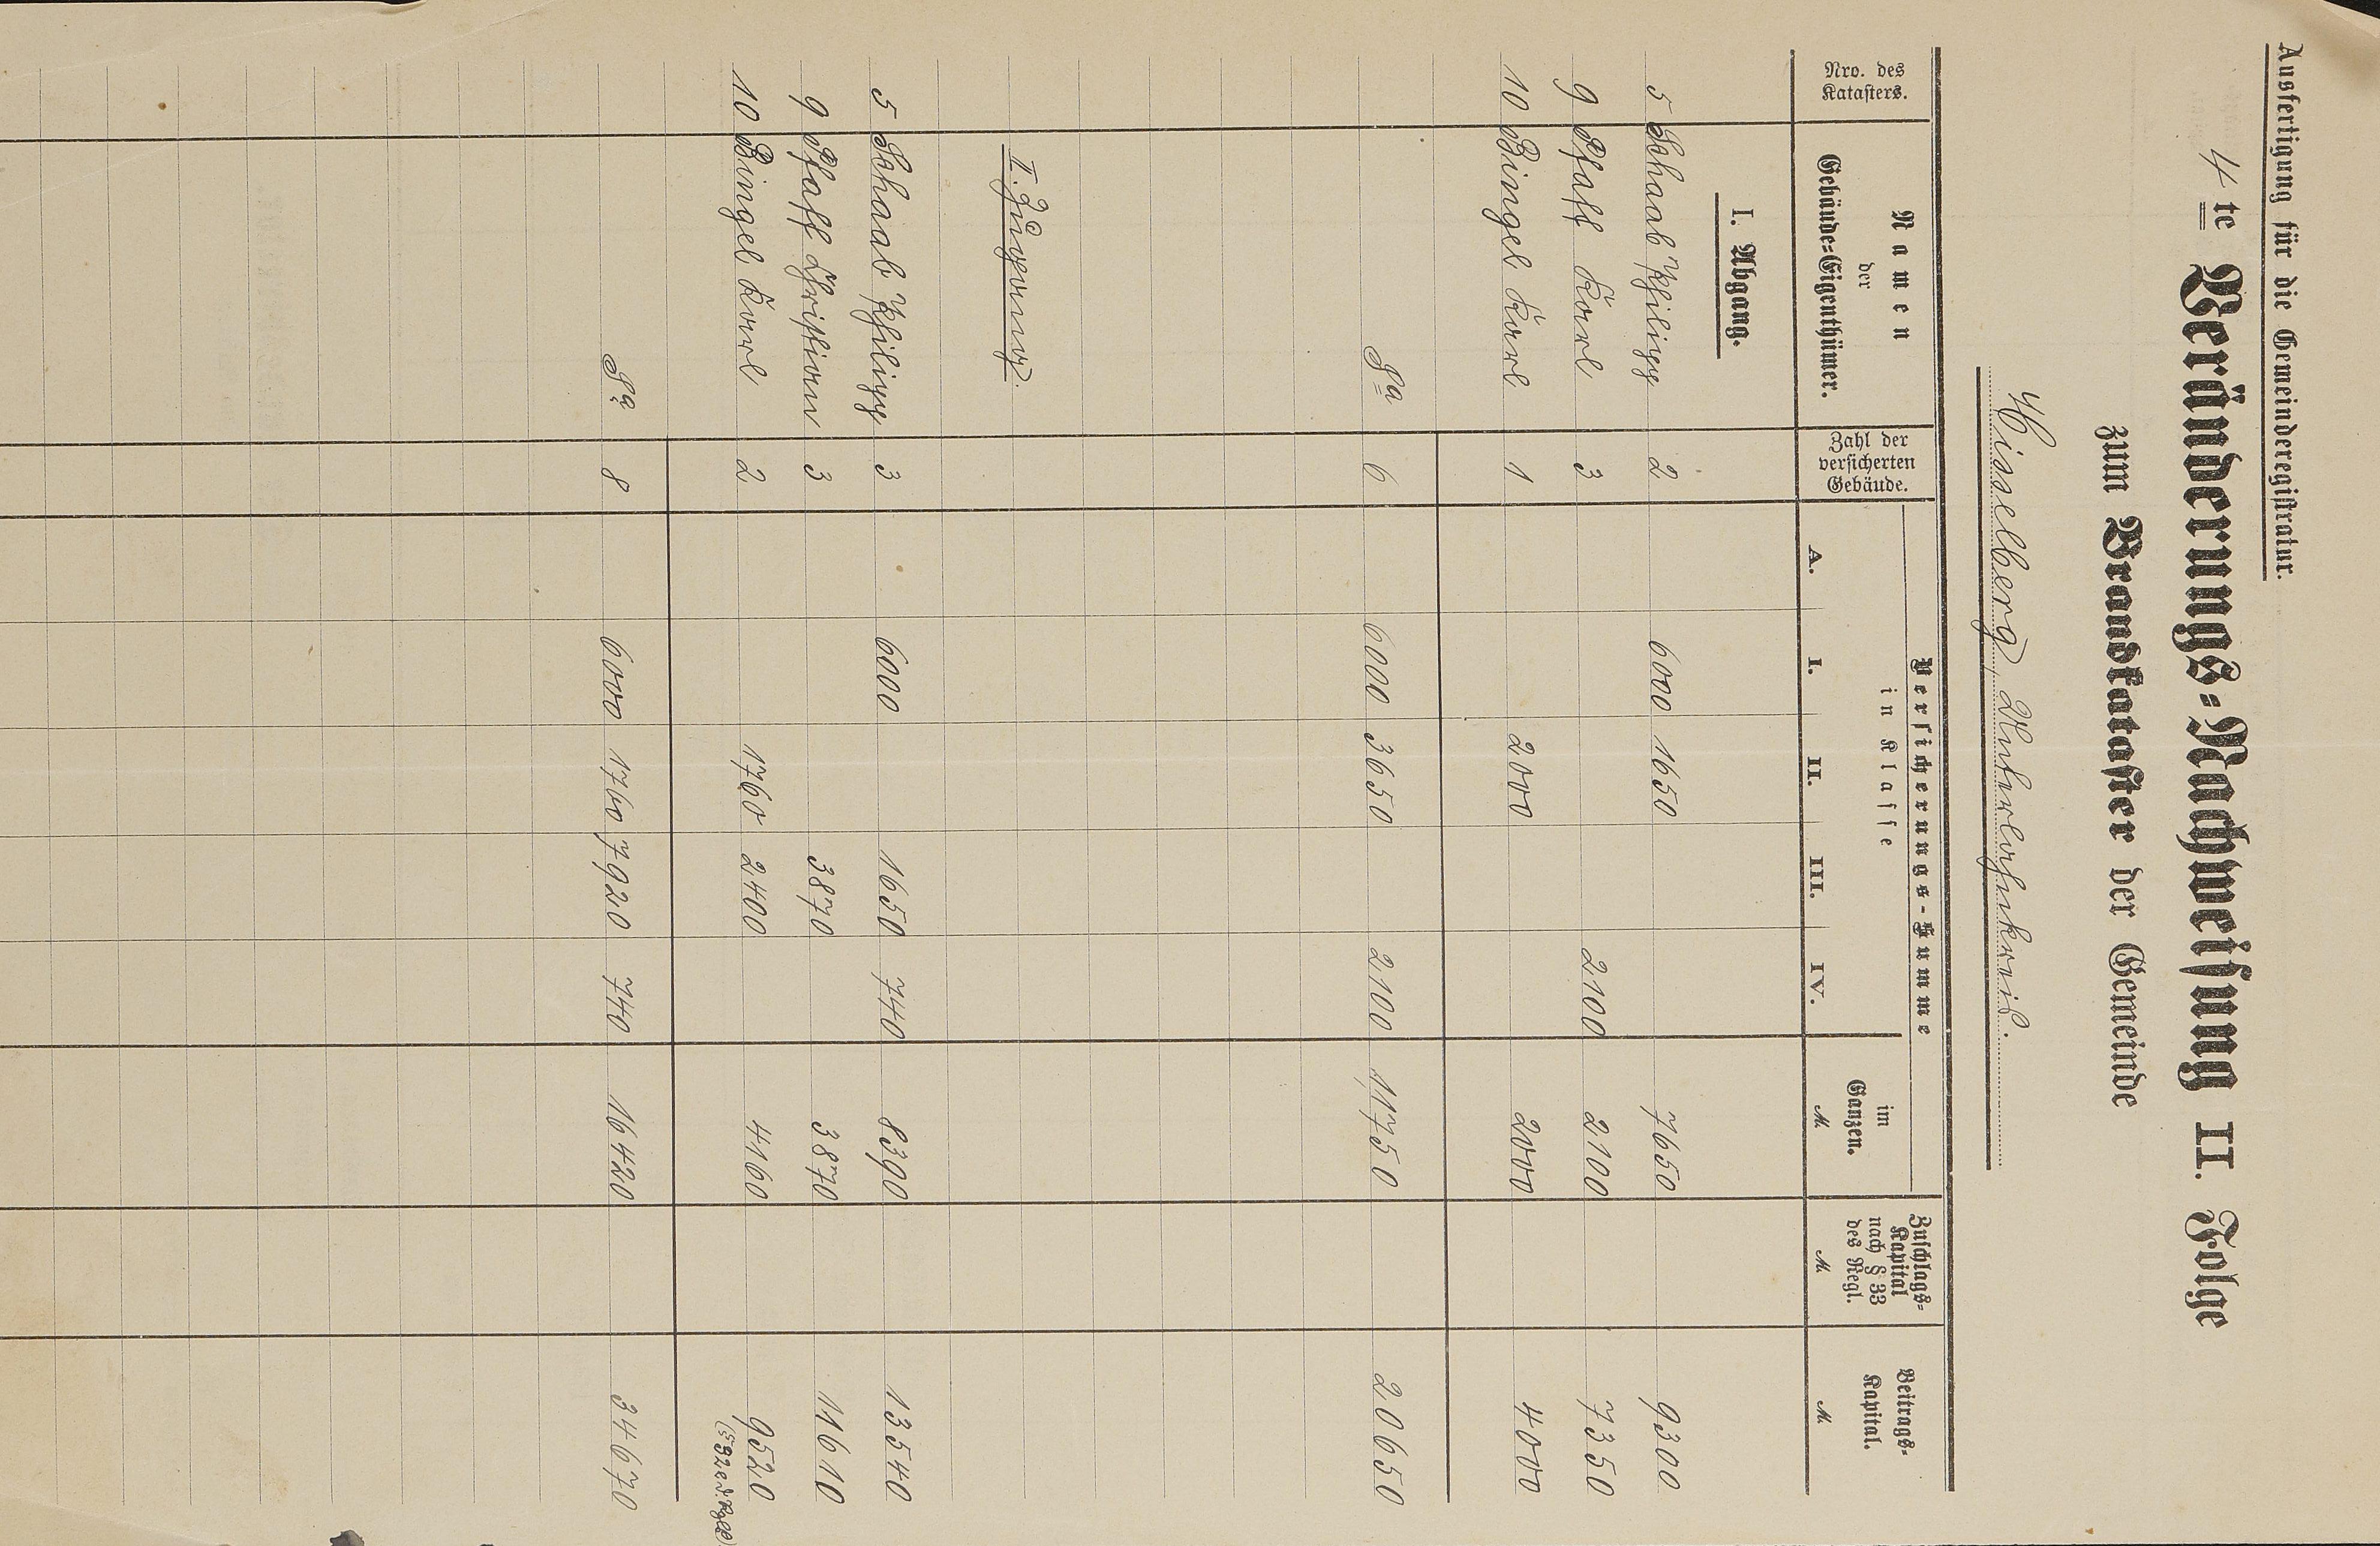 Ausfertigung für die Gemeinderegistratur.
4te Veränderungs-Nachweisung II. Folge
zum Brandkataster der Gemeinde
Hisselberg, Unterlahnkreis.
Nro. des Katasters.
Namen der Gebäude-Eigenthümer.
Zahl der versicherten Gebäude.
Versicherungs-Summe
in Klasse
A. I. II. III. IV.
im Ganzen. M.
Zuschlags-Kapital nach § 33 des Regl. M.
Beitrags-Kapital. M.
I. Abgang.
5 Schaab Philipp 2 6000 1650 7650 9300
9 Pfaff Karl 3 2100 2100 7350
10 Bingel Karl 1 2000 2000 4000
Sa 6 6000 3650 2100 11750 20650
II. Zugang.
5 Schaab Philipp 3 6000 1650 740 8390 13540
9 Pfaff Christian 3 3870 3870 11610
10 Bingel Karl 2 1760 2400 4160 9520
Sa 8 6000 1760 7920 740 16420 34670